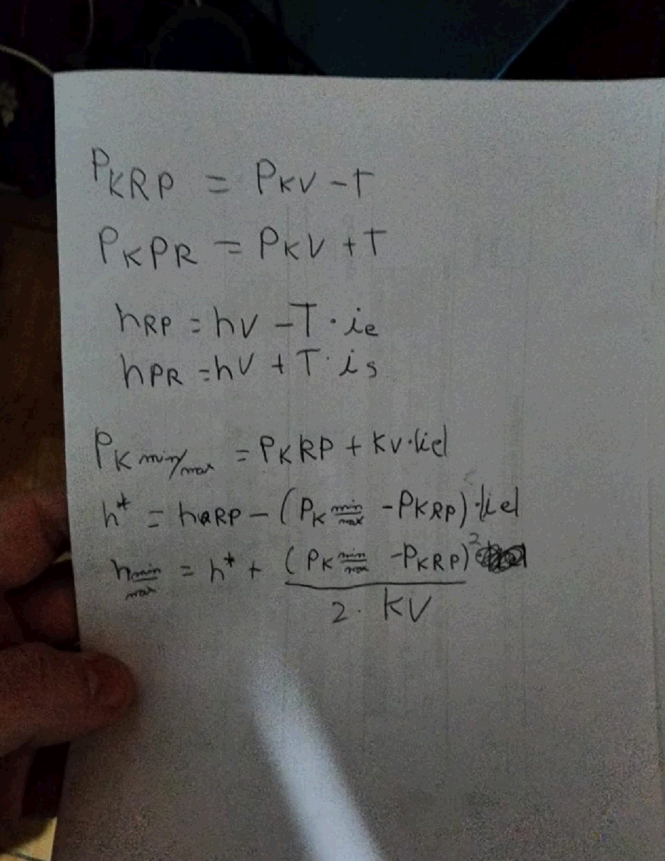 PKRP = PKV - T
PKPR = PKV + T
hRP = hV - T · ie
hPR = hV + T · is
PK min/max = PKRP + KV · |ie|
h* = haRP - (PK min/max - PKRP) · |ie|
h min/max = h* + (PK min/max - PKRP)²
2 · KV